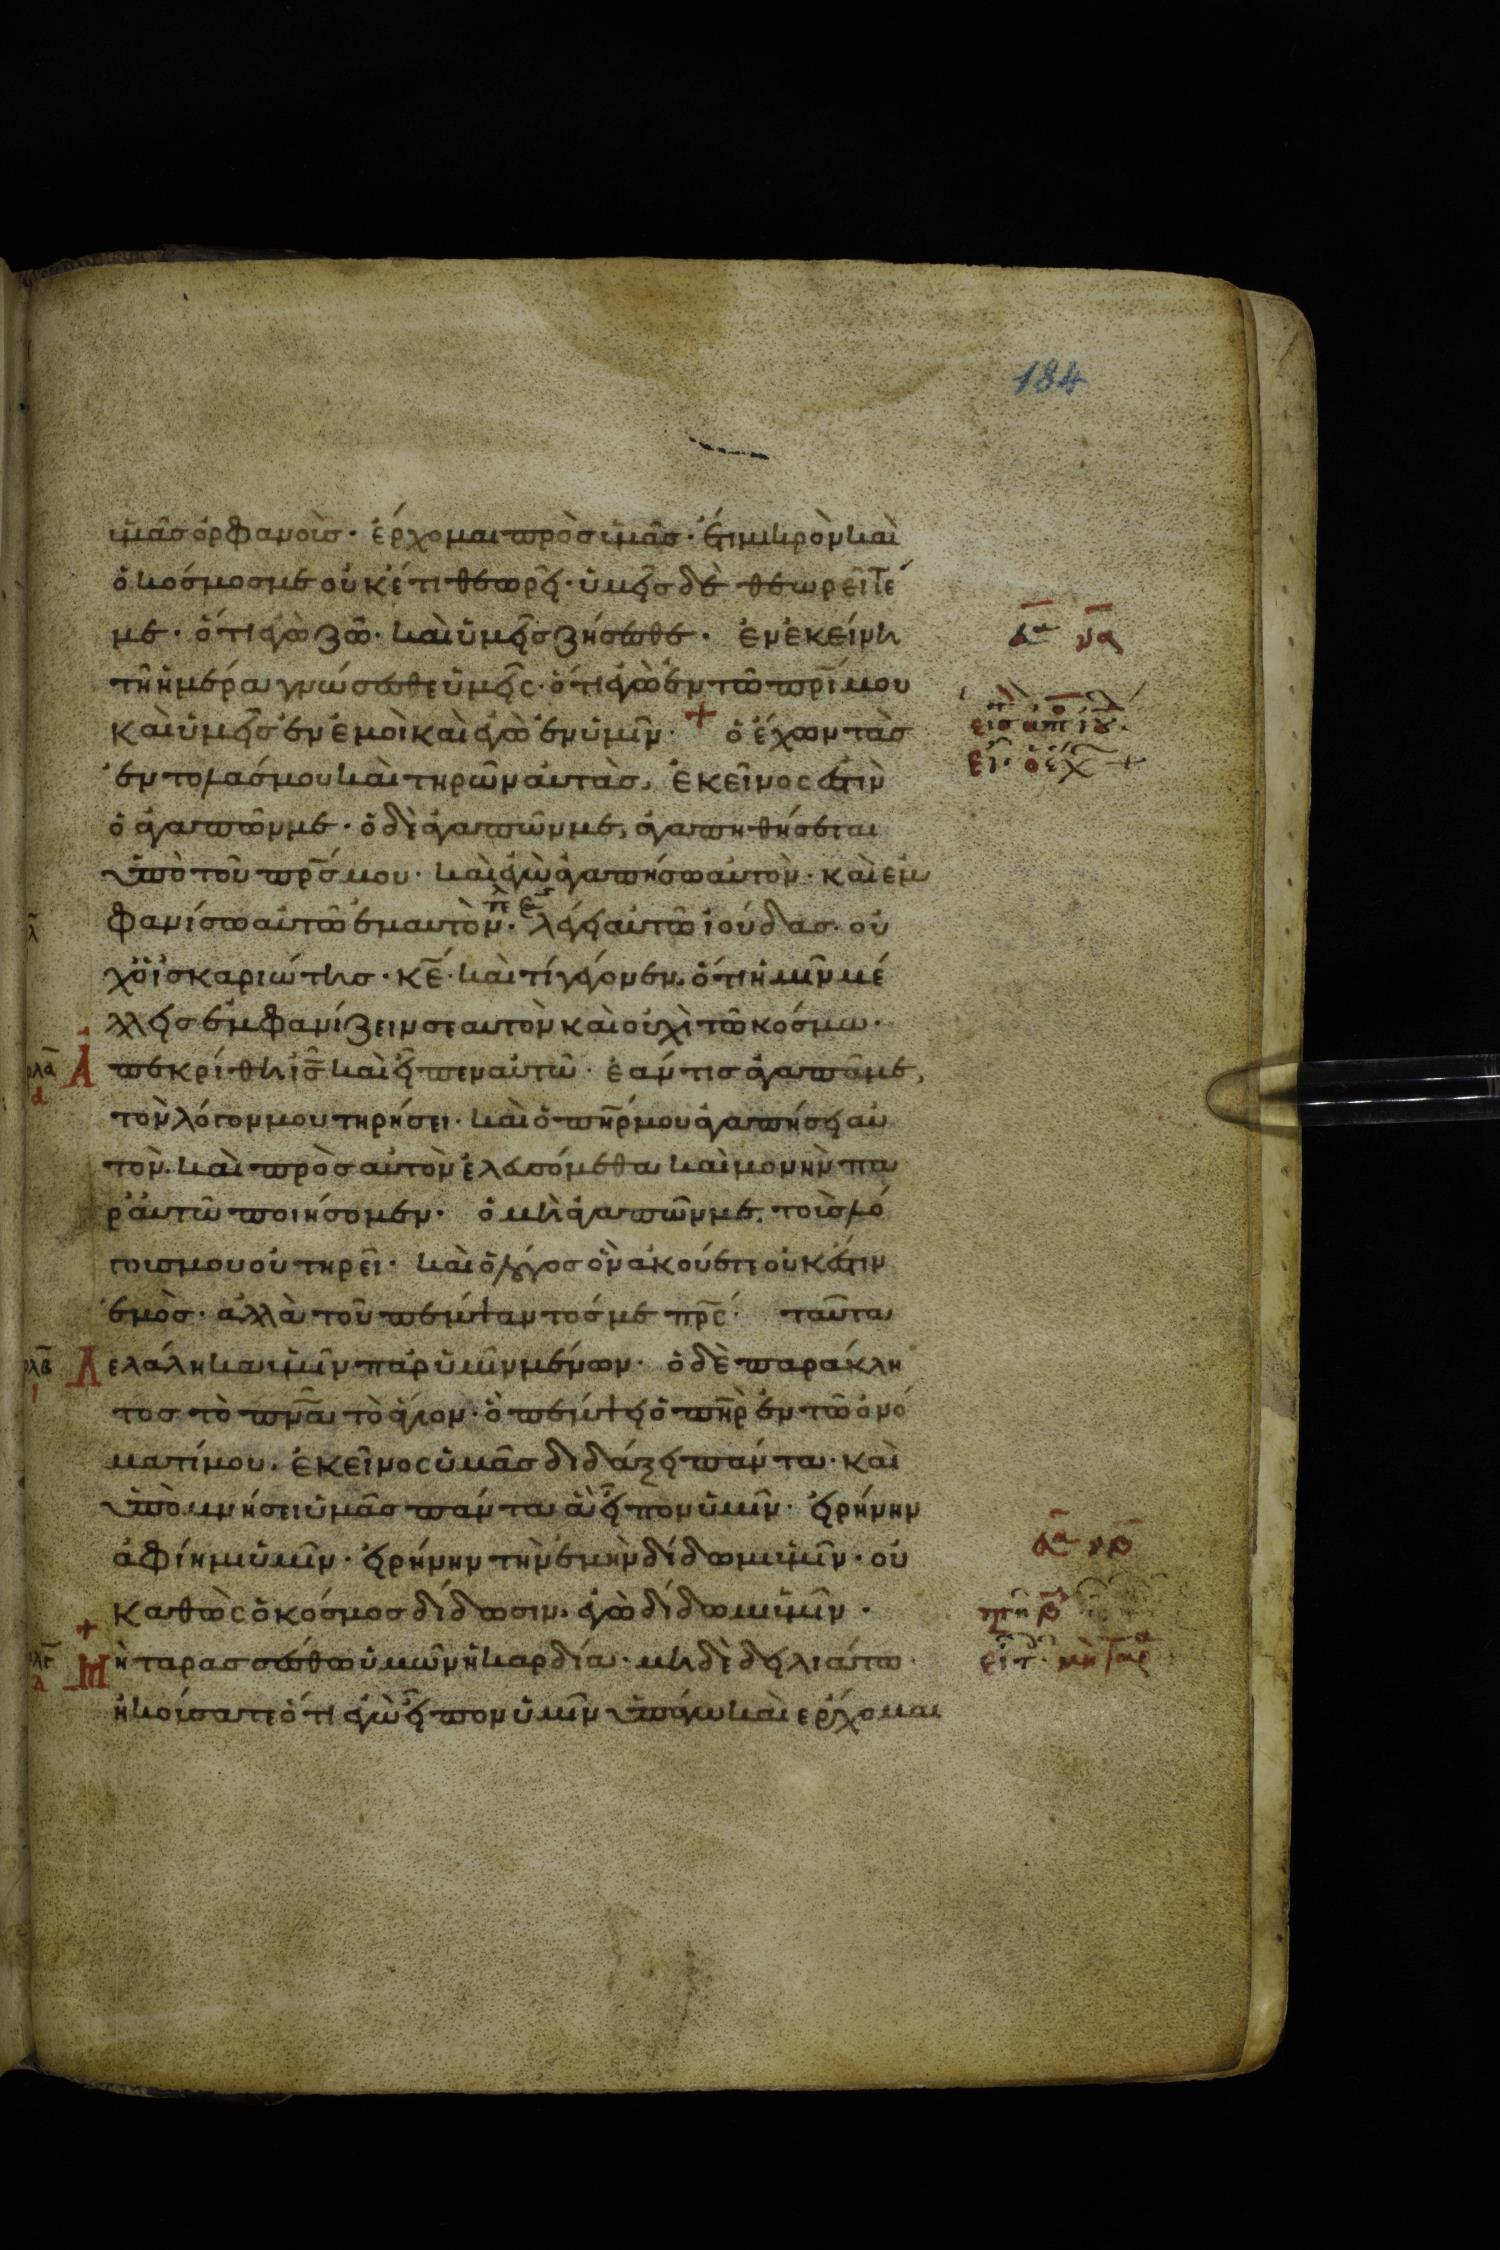 184
ὑμᾶς ὀρφανοὺς· ἔρχομαι πρὸς ὑμᾶς· ἔτι μικρὸν καὶ
ὁ κόσμος με οὐκ έτι θεωρεῖ· ὑμεῖς δὲ θεωρεῖτέ
με· ὅτι ἐγὼ ζῶ· καὶ ὑμεῖς ζήσεσθε· ἐν ἐκείνη
τῆ ἡμέρα γνώσεσθε ὑμεῖς· ὅτι ἐγὼ ἐν τῶ πρ̅ί μου
καὶ ὑμεῖς ἐν ἐμοὶ καὶ ἐγὼ ἐν ὑμῖν· + ὁ ἔχων τὰς
ἐντολάς μου καὶ τηρῶν αὐτὰς, ἐκεῖνος ἐστὶν
ὁ ἀγαπῶν με· ὁ δὲ ἀγαπῶν με, ἀγαπηθήσεται
ὑπὸ τοῦ πρ̅ς μου· καὶ ἐγὼ ἀγαπήσω αὐτὸν· καὶ ἐμ
φανίσω αὐτῶ ἐμαυτὸν· λέγει αὐτῶ ἰούδας· οὐ
χ ὁ ἰσκαριώτης· κ̅ε· καὶ τί γέγονεν, ὅτι ἡμῖν μέ
λλεις ἐμφανίζειν σεαυτὸν καὶ οὐχὶ τῶ κόσμω·
Ἀ πεκρίθη ἰ̅ς καὶ εἶπεν αὐτῶ· ἐάν τις ἀγαπᾶ με,
τὸν λόγον μου τηρήσει· καὶ ὁ πη̅ρ μου ἀγαπήσει αὐ
τὸν· καὶ πρὸς αὐτὸν ἐλευσόμεθα καὶ μονὴν πα
ρ ἀυτῶ ποιήσομεν· ὁ μὴ ἀγαπῶν με, τοὺς λό
γους μου οὐ τηρεῖ· καὶ ὁ λόγος ὃν ἀκούετε οὐκ ἔστιν
ἐμὸς· ἀλλὰ τοῦ πέμψαντός με πρ̅ς· ταῦτα
λελάληκα ὑμῖν παρ ὑμῖν μένων· ὁ δὲ παράκλη
τος τὸ πν̅α τὸ ἅγιον· ὃ πέμψει ὁ πη̅ρ ἐν τῶ ὀνό
ματί μου, ἐκεῖνος ὑμᾶς διδάξει πάντα· καὶ
ὑπομνήσει ὑμᾶς πάντα ἃ εἶπον ὑμῖν· εἰρήνην
ἀφίημι ὑμῖν· εἰρήνην τὴν ἐμὴν δίδωμι ὑμῖν· οὐ
καθὼς ὁ κόσμος δίδωσιν, ἐγὼ δίδωμι ὑμῖν·
+ Μ ὴ ταρασσέσθω ὑμῶν ἡ καρδία· μὴ δὲ δειλιάτω·
ἠκούσατε ὅτι ἐγὼ εἶπον ὑμῖν ὑπάγω καὶ ἔρχομαι
ρλα
ρλβ
ρλγ